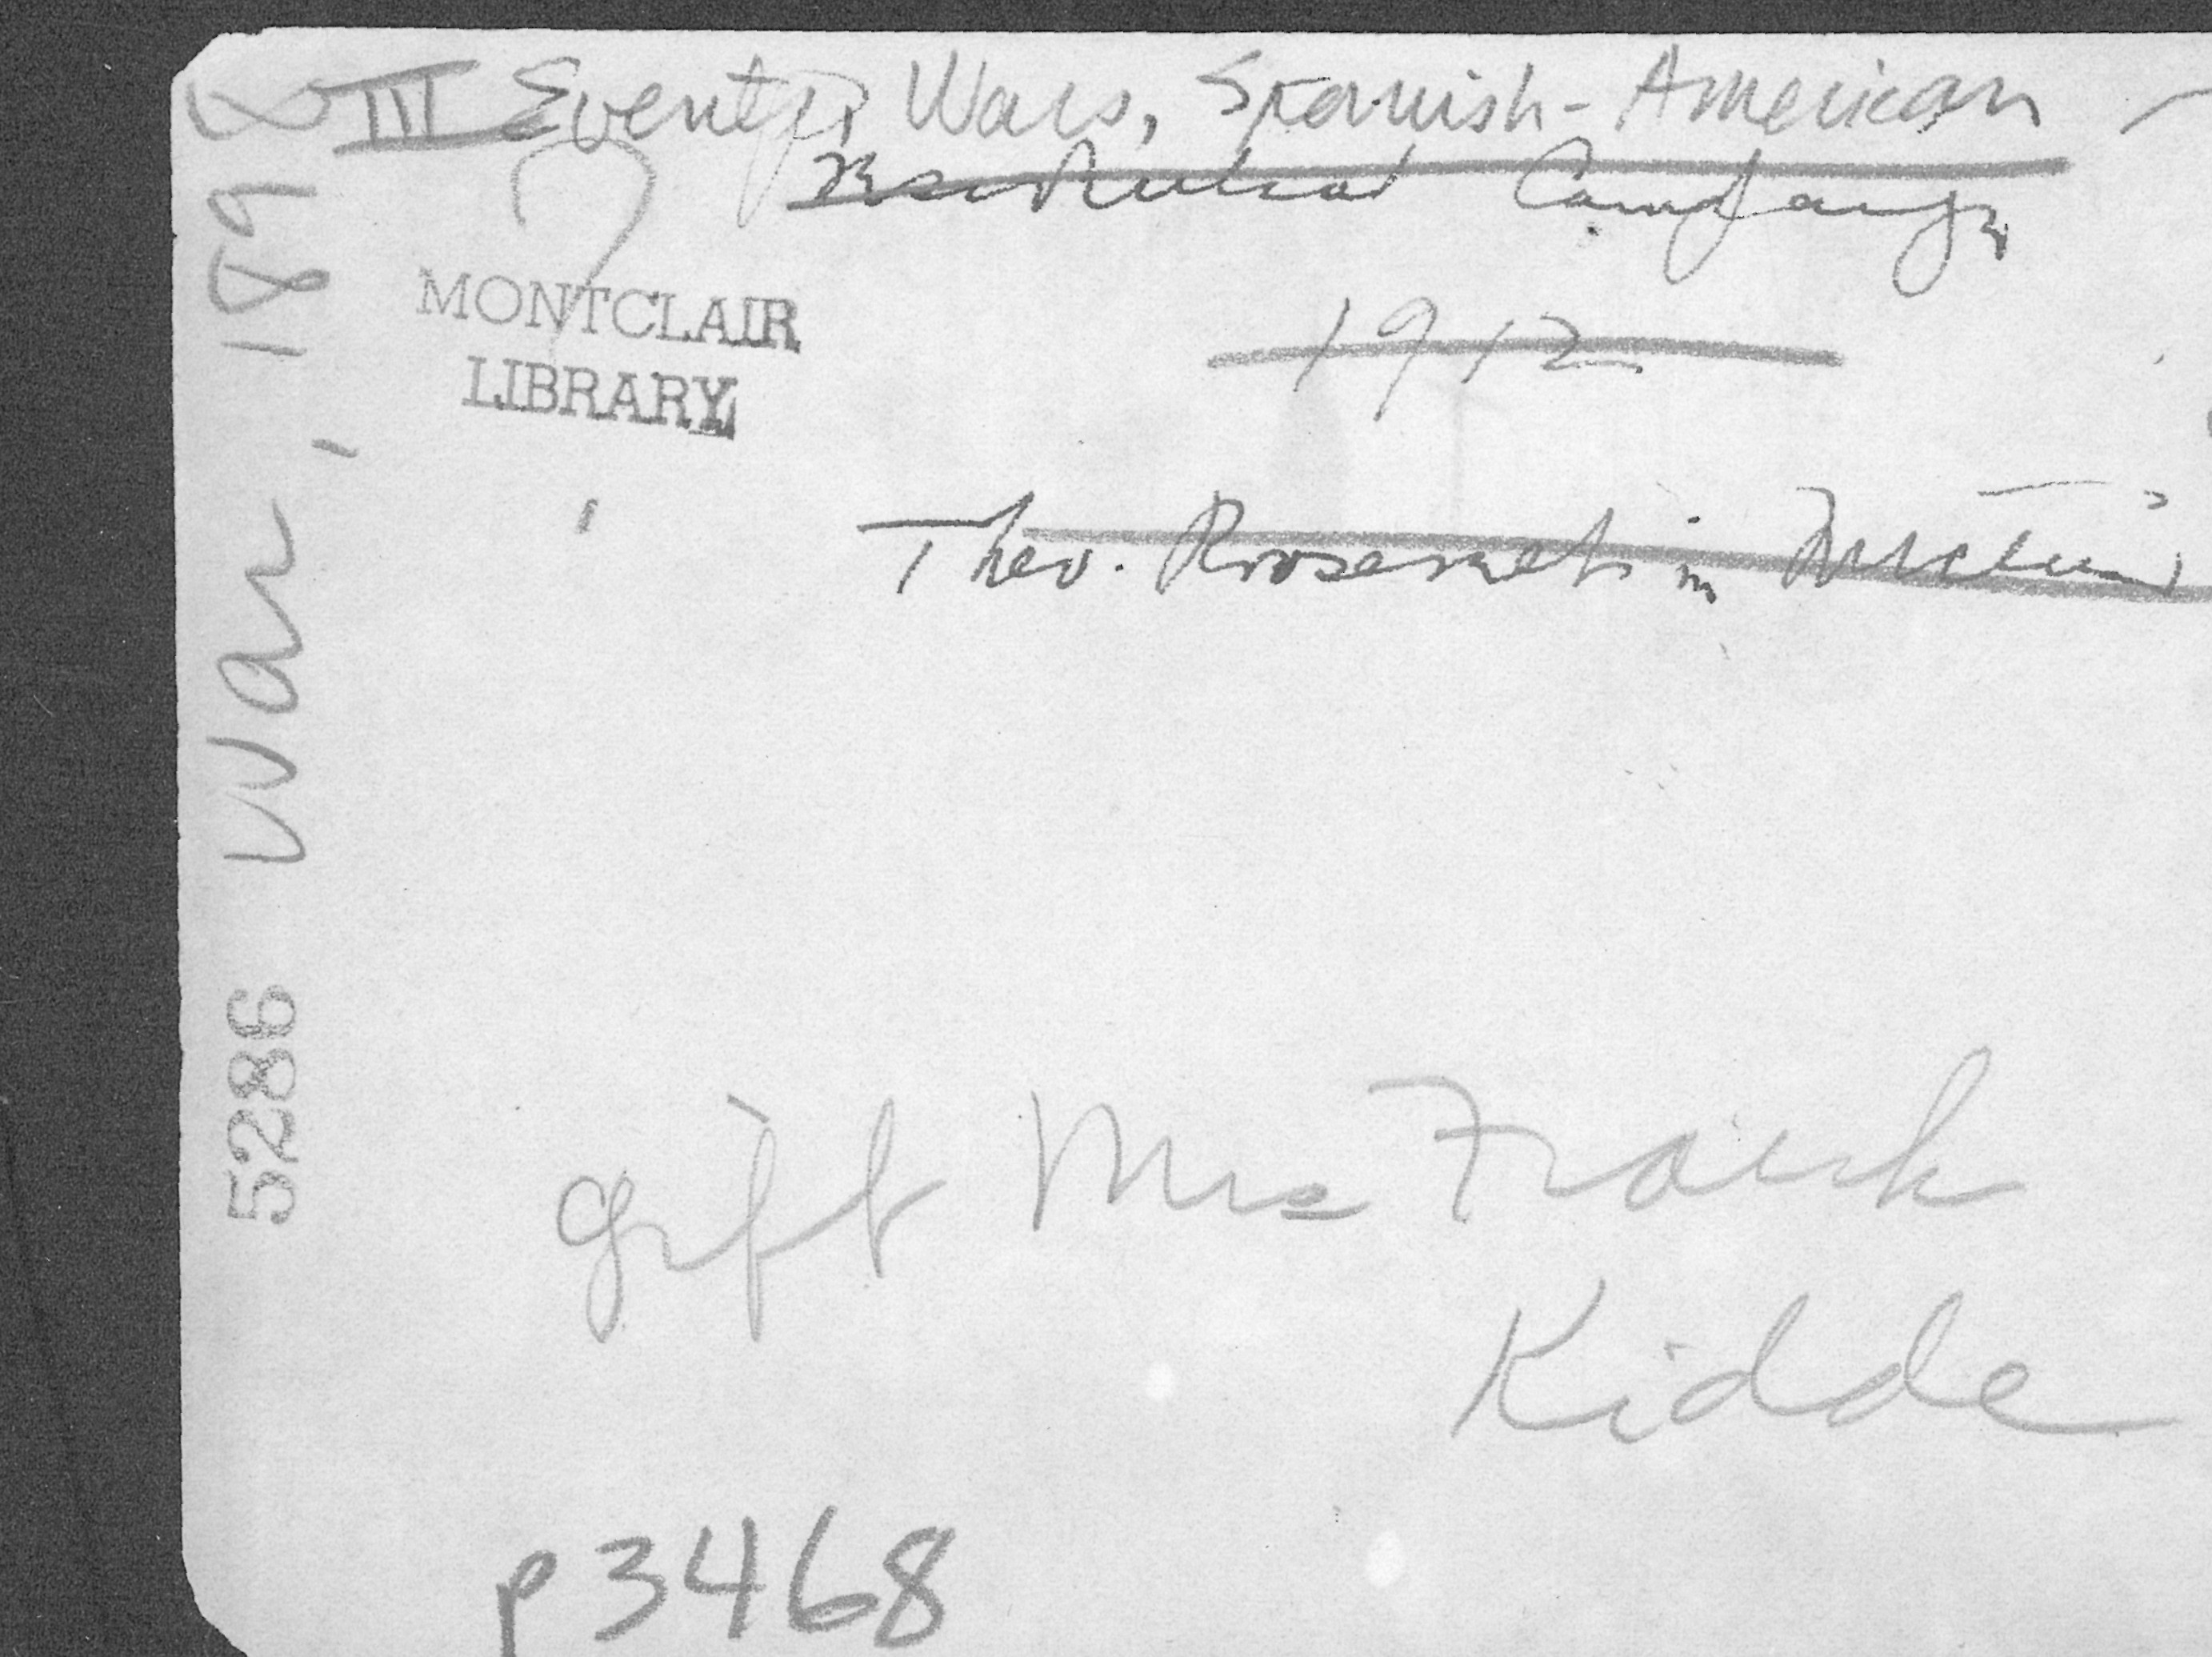 III Events, Wars, Spanish-American -
Campaign
1912
MONTCLAIR
LIBRARY
Theo. Roosevelt in
War, 1898
5286
gift Mrs Frank
Kidde
p3468